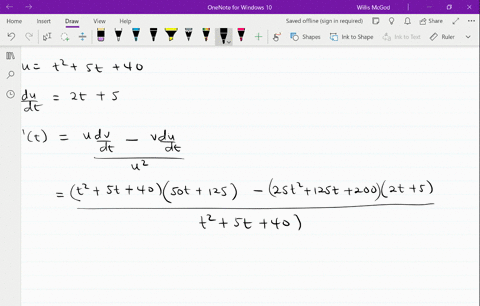 OneNote for Windows 10
Willis McGod
Home Insert Draw View Help
Saved offline (sign in required)
Share
Shapes Ink to Shape Ink to Text Ruler
u = t² + 5t + 40
du/dt = 2t + 5
'(t) = (u dv/dt - v du/dt) / u²
= ((t² + 5t + 40)(50t + 125) - (25t² + 125t + 200)(2t + 5)) / t² + 5t + 40)